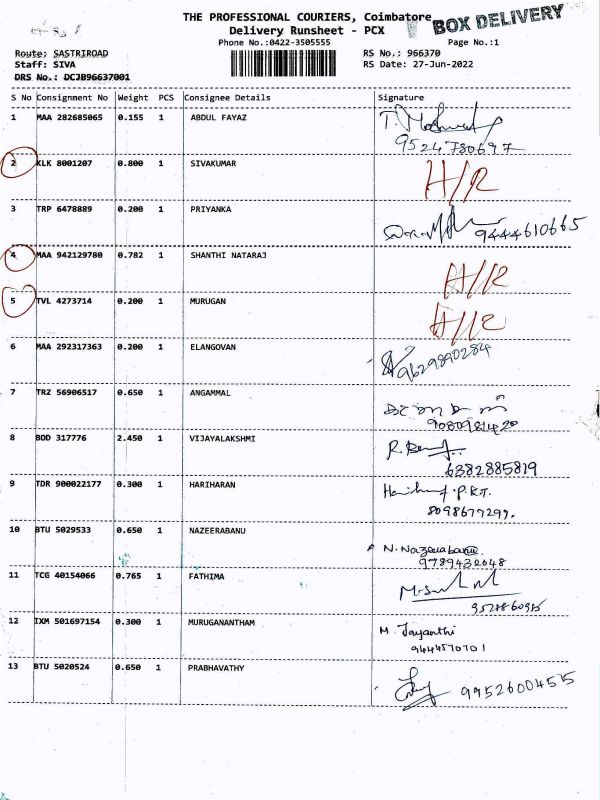 THE PROFESSIONAL COURIERS, Coimbatore
BOX DELIVERY
Delivery Runsheet - PCX
Phone No.:0422-3505555
Page No.:1
Route: SASTRIROAD
RS No.: 966370
Staff: SIVA
RS Date: 27-Jun-2022
DRS No.: DCJB96637001
S No Consignment No Weight PCS Consignee Details Signature
1 MAA 282685065 0.155 1 ABDUL FAYAZ
9524730697
2 KLK 8001207 0.800 1 SIVAKUMAR H/R
3 TRP 6478889 0.200 1 PRIYANKA 9444610665
4 MAA 942129780 0.782 1 SHANTHI NATARAJ H/R
5 TVL 4273714 0.200 1 MURUGAN H/R
6 MAA 292317363 0.200 1 ELANGOVAN 9629890284
7 TRZ 56906517 0.650 1 ANGAMMAL
8 BOD 317776 2.450 1 VIJAYALAKSHMI
6382885819
9 TDR 900022177 0.300 1 HARIHARAN
8098679299.
10 BTU 5029533 0.650 1 NAZEERABANU N. Nazeerabanu
9789432648
11 TCG 40154066 0.765 1 FATHIMA
12 IXM 501697154 0.300 1 MURUGANANTHAM M. Jayanthi
9444570701
13 BTU 5020524 0.650 1 PRABHAVATHY 9952600455